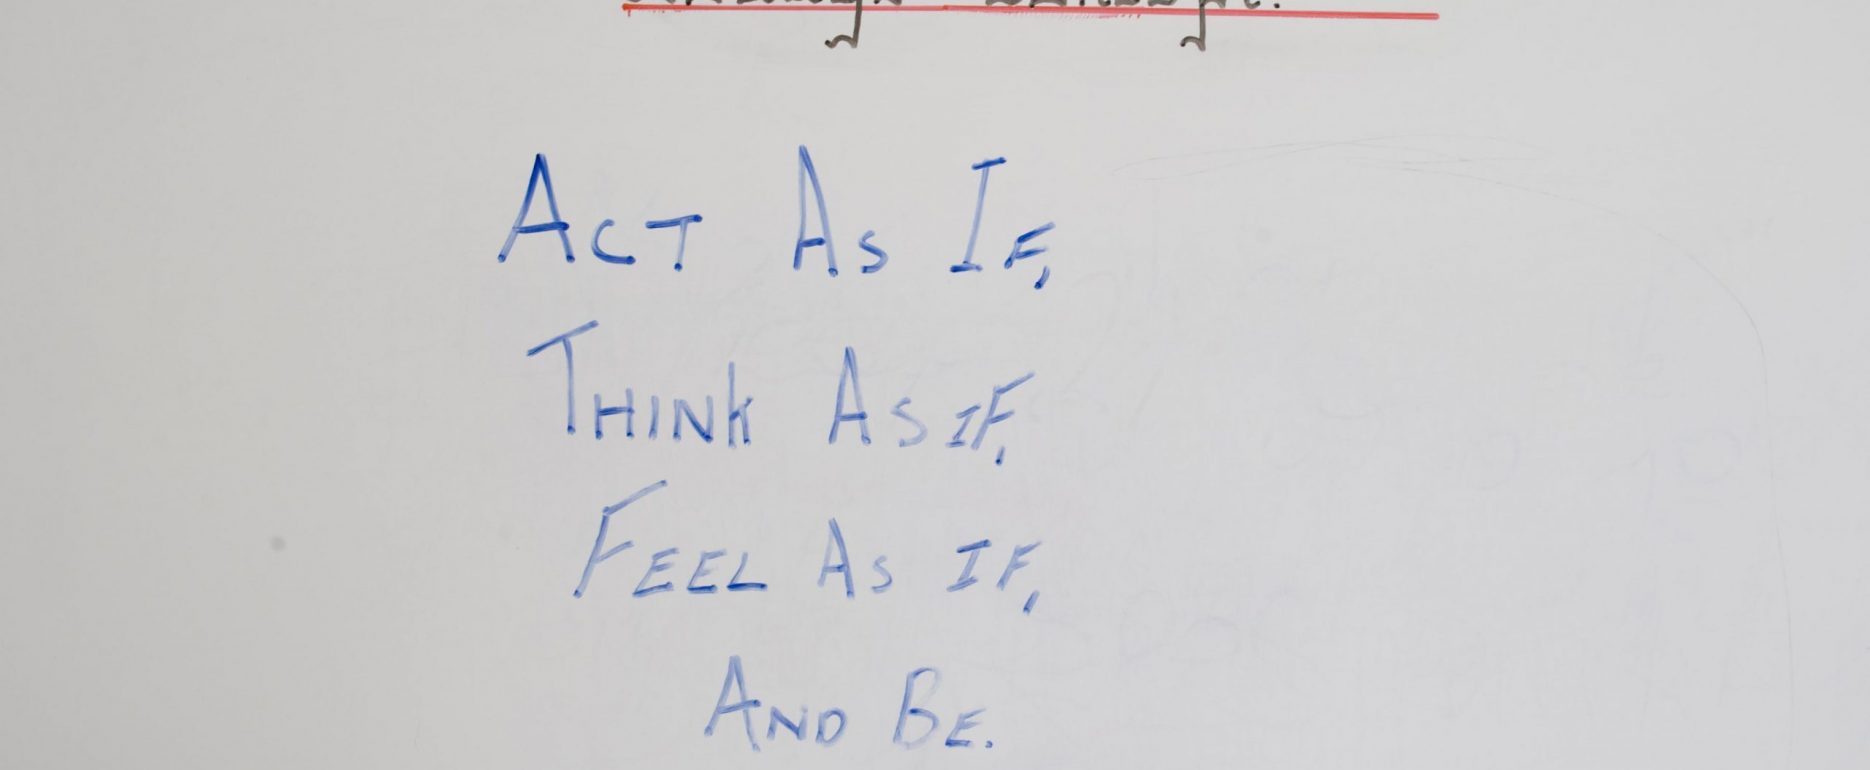 Act As If,
Think As if,
Feel As if,
And Be.